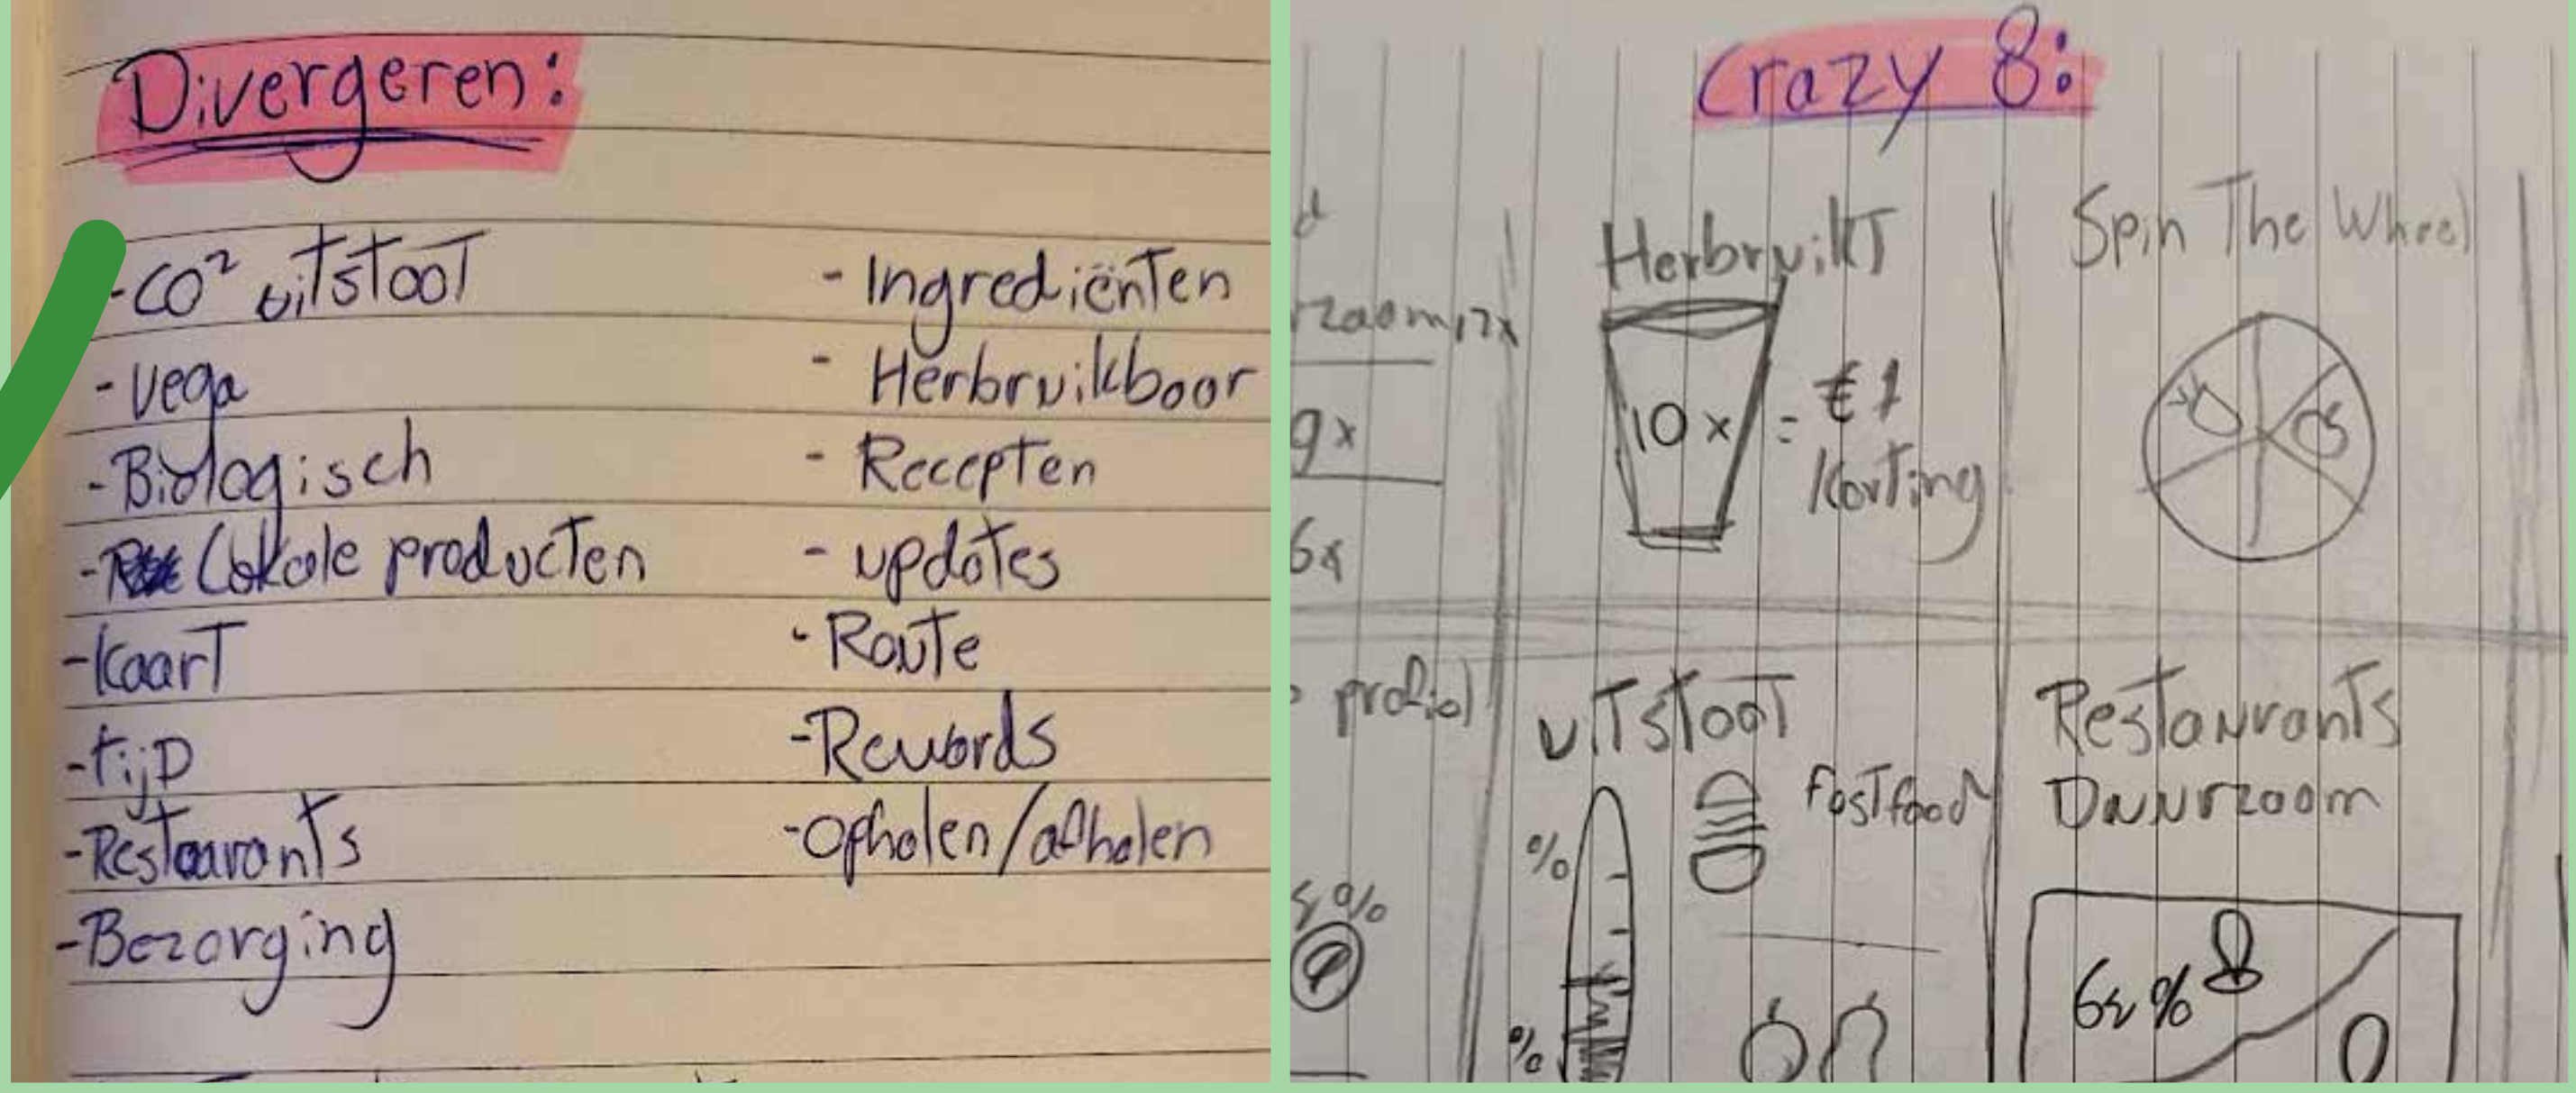 Divergeren:
-CO² uitstoot
-Vega
-Biologisch
-Lokale producten
-Kaart
-tijD
-Restaurants
-Bezorging
-Ingrediënten
-Herbruikbaar
-Recepten
-updates
-Route
-Rewards
-Ophalen/afhalen
Crazy 8:
rzaam 17x
9x
6x
Herbruikt
10x = €1
Korting
Spin The Wheel
profiel
%
uitstoot
fastfood
%
%
Restaurants
Duurzaam
%